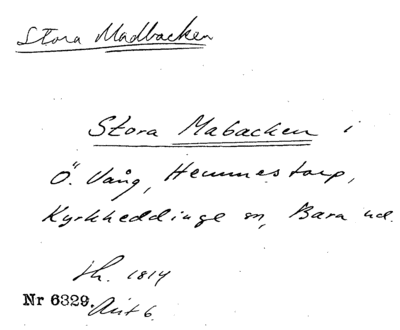 Stora Madbacken
Stora Mabacken i
Ö. Vång, Hemmestorp,
Kyrkheddinge sn, Bara hd.
1814
Nr 6329.
Akt 6.